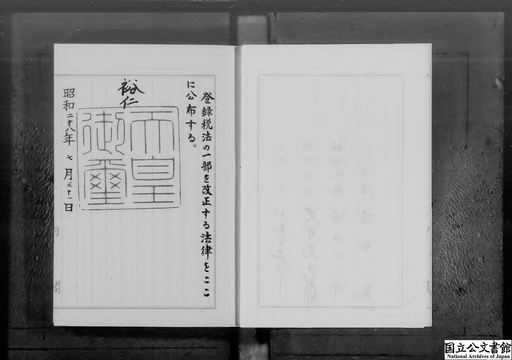 登録税法の一部を改正する法律をここ
に公布する。
裕仁
天皇
御璽
昭和二十八年七月三十一日
国立公文書館
National Archives of Japan